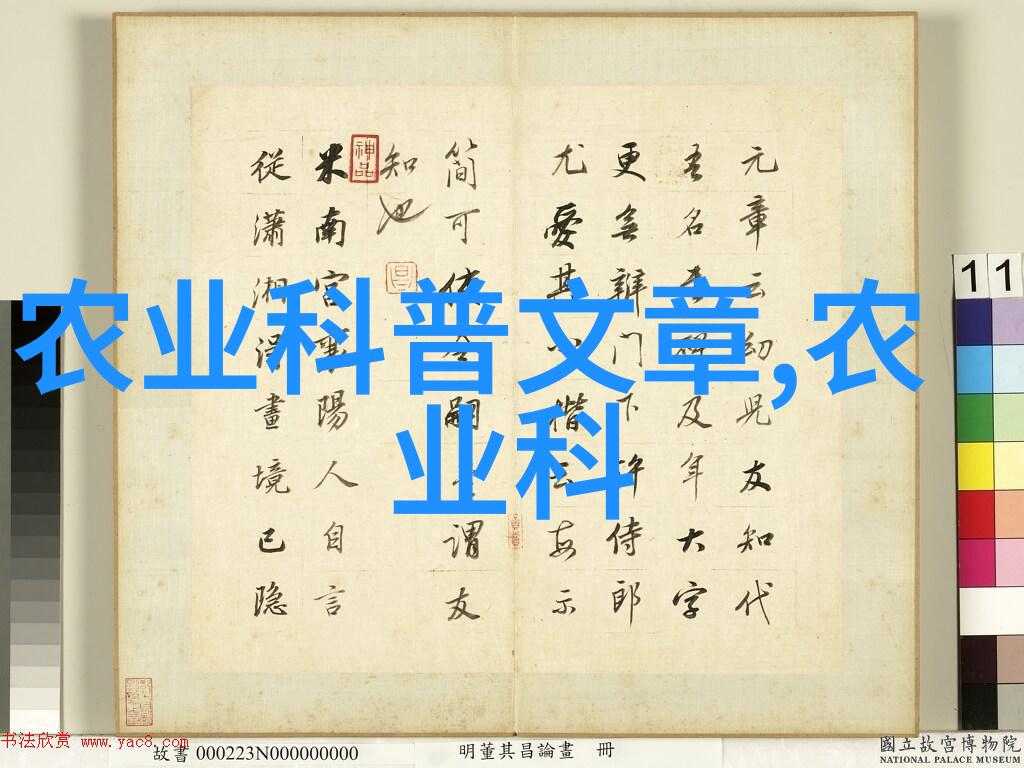 农业科普文章,农
业科
元章云幼見友知代
吾名書碑及年大字
更無辭門下許侍郎
尤愛其小楷云每示
簡可使令嗣書謂友
知也
神品
米南宮襄陽人自言
從瀟湘得畫境已隐
11
书法欣赏 www.yac8.com
故書 000223N000000000
明董其昌論畫 冊
國立故宮博物院
NATIONAL PALACE MUSEUM